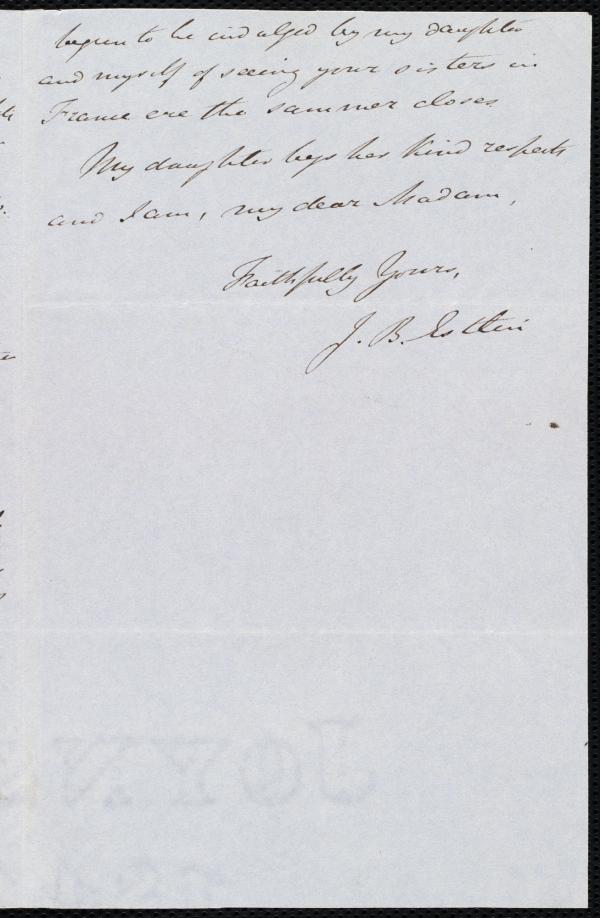 begun to be indulged by my daughter
and myself of seeing your sisters in
France ere the summer closes
My daughter begs her kind respects
and I am, my dear Madam,
Faithfully Yours,
J. B. Estlin
JOYN